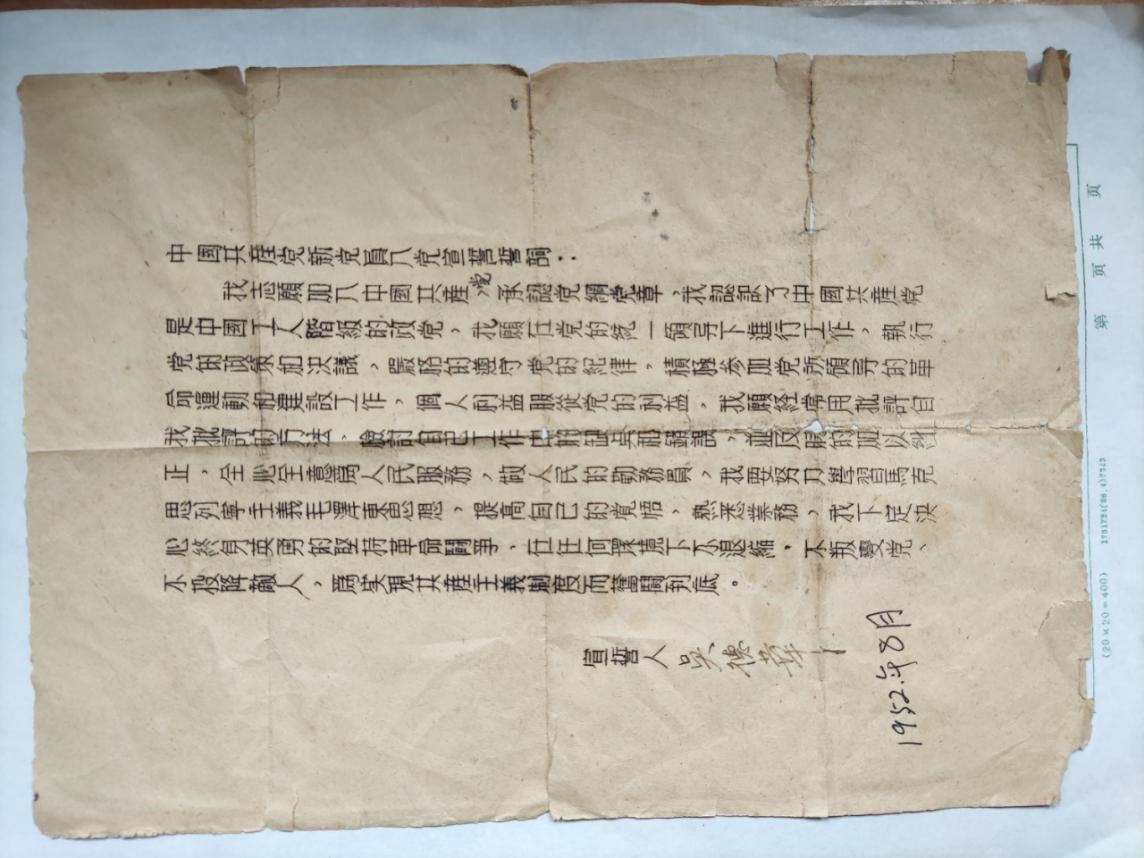 中國共産党新党員入党宣誓誓詞：
我志願加入中國共産党承認党綱党章，我認識了中國共産党
是中國工人階級的政党，我願在党的統一領导下進行工作，執行
党的政策和决議，嚴格的遵守党的紀律，積極参加党所領导的革
命運動和建設工作，個人利益服從党的利益，我願経常用批評自
我批評的方法，檢討自己工作中的缺点和錯誤，並及時的加以糾
正，全心全意為人民服務，做人民的勤務員，我要努力學習馬克
思列寧主義毛澤東思想，提高自己的覚悟，熟悉業務，我下定决
心終身英勇的堅持革命鬪爭，在任何環境下不退縮，不叛變党、
不投降敵人，為实現共産主義制度而奮鬪到底。
宣誓人 吳德華
1952.年8月
第 页 共 页
(20×20=400)